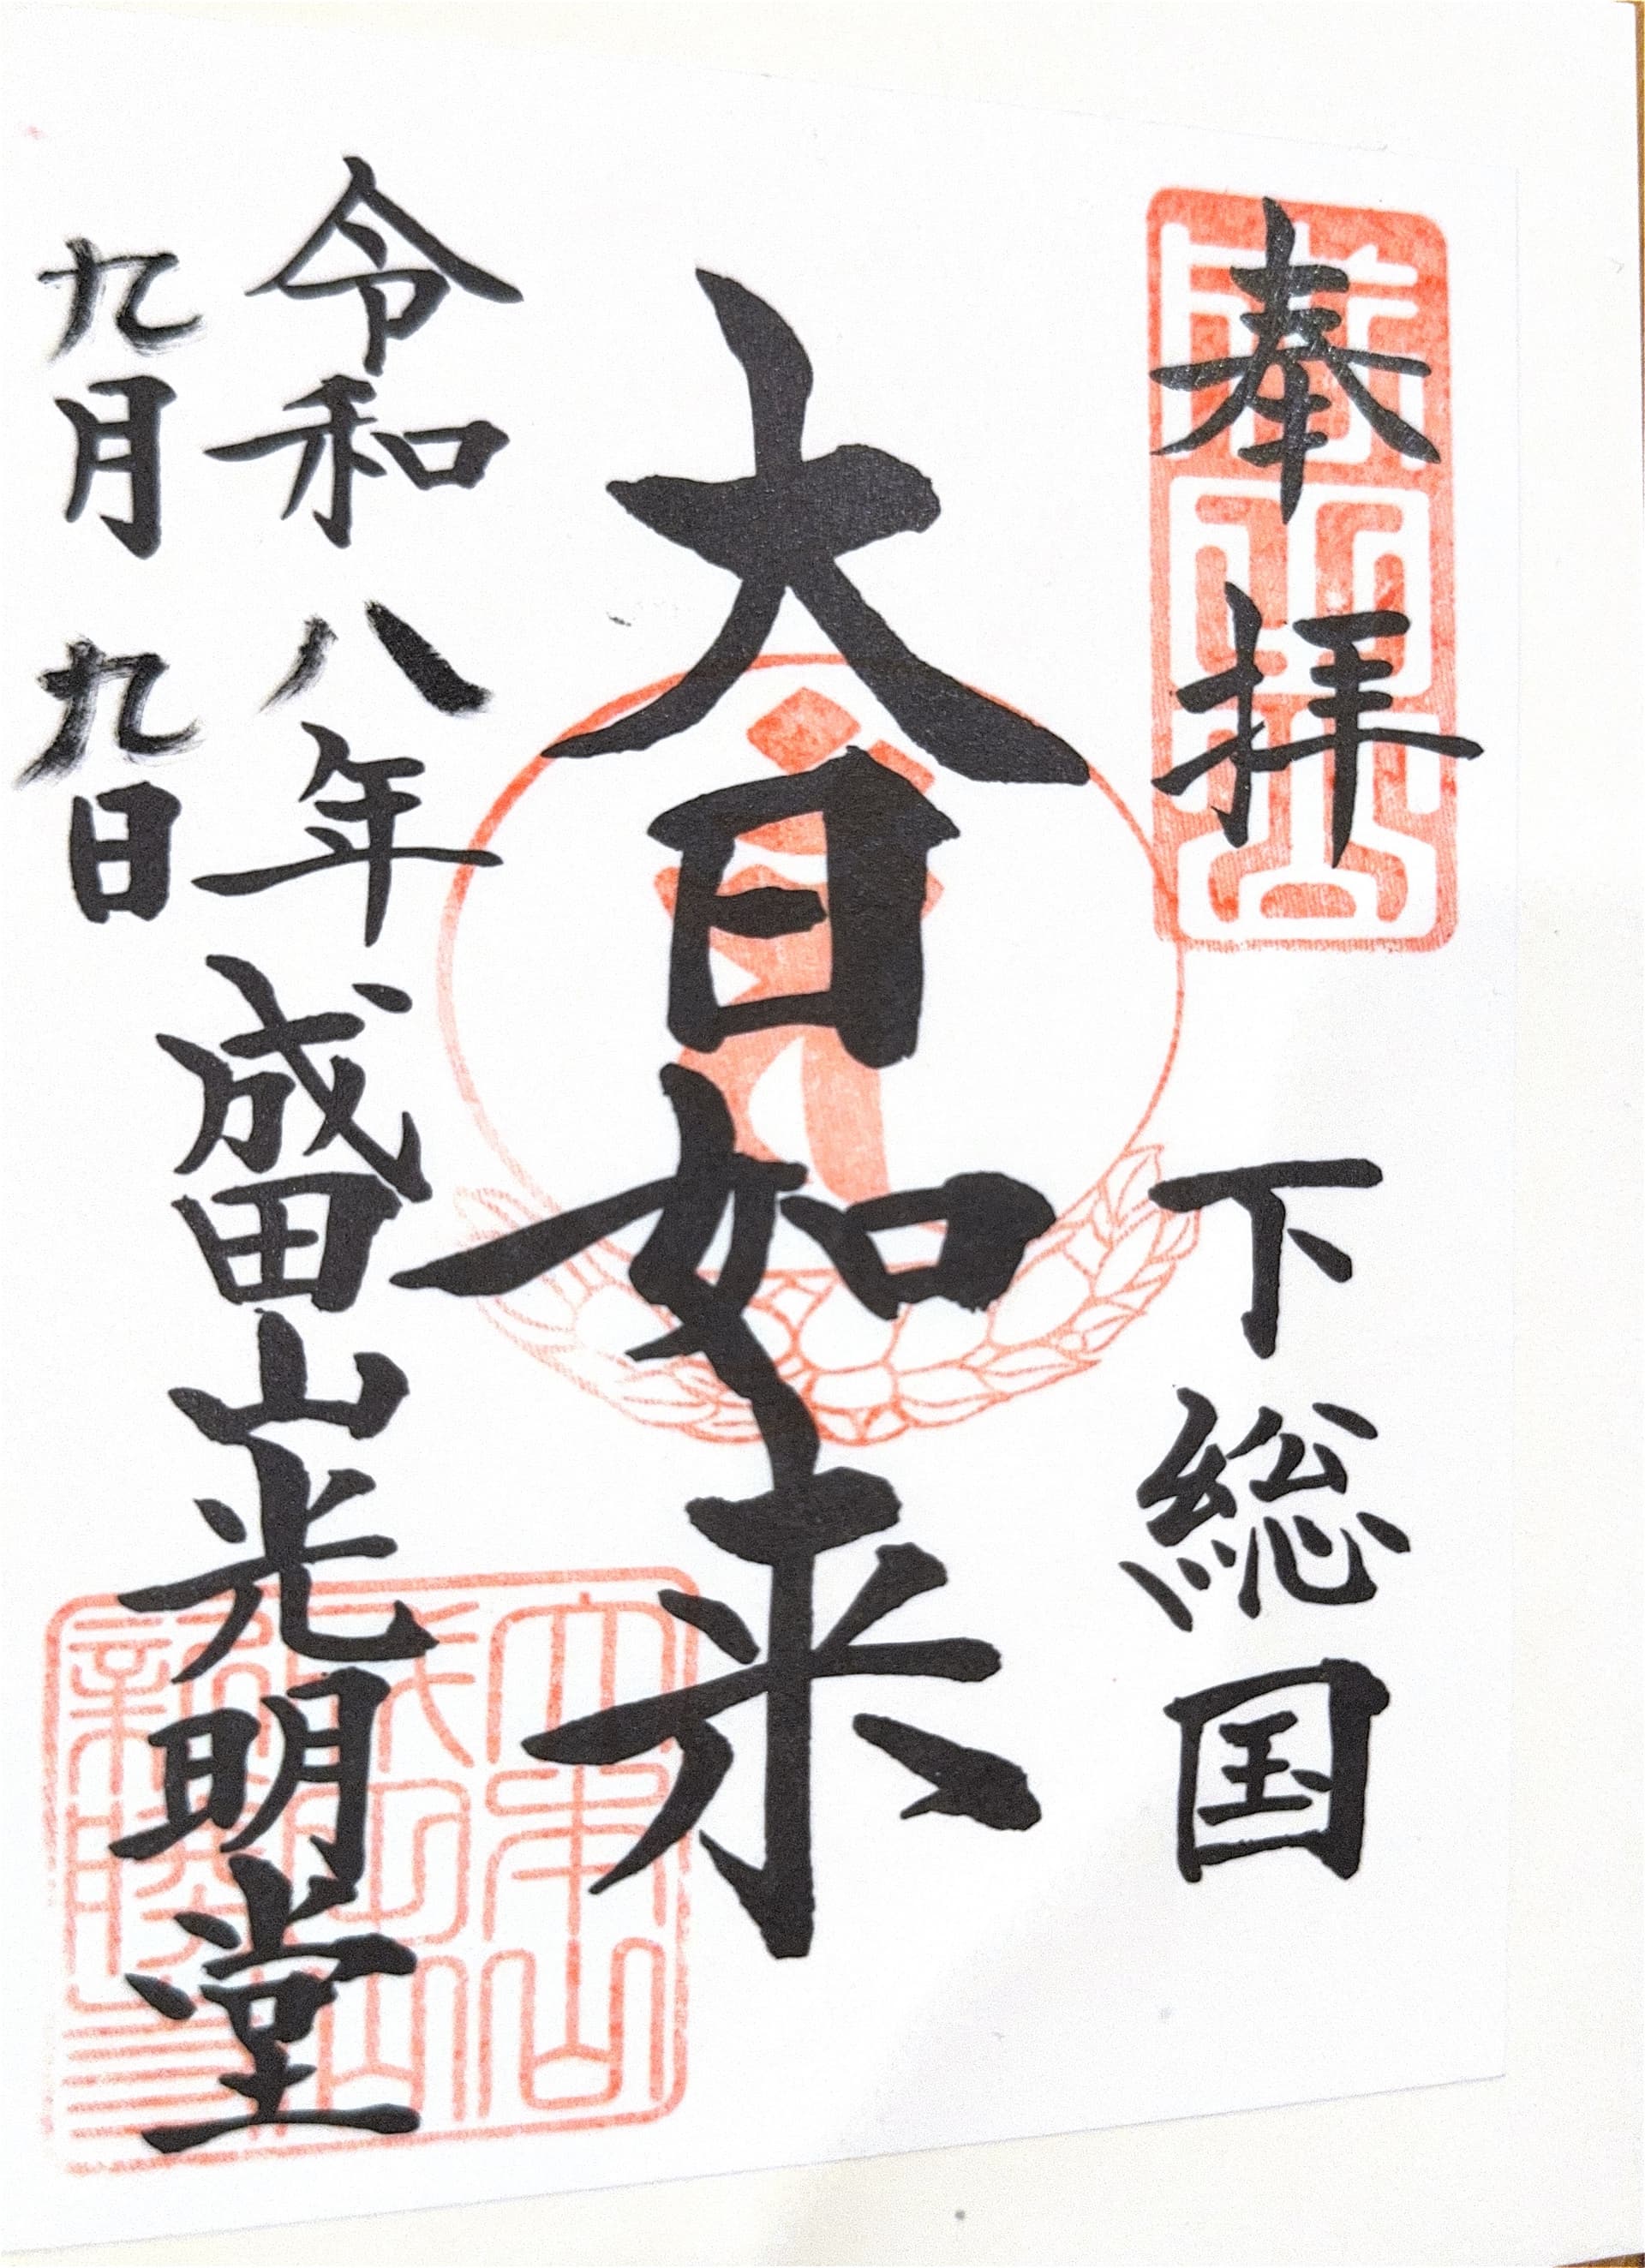 奉拝 下総国
大日如来
令和八年 成田山光明堂
九月九日